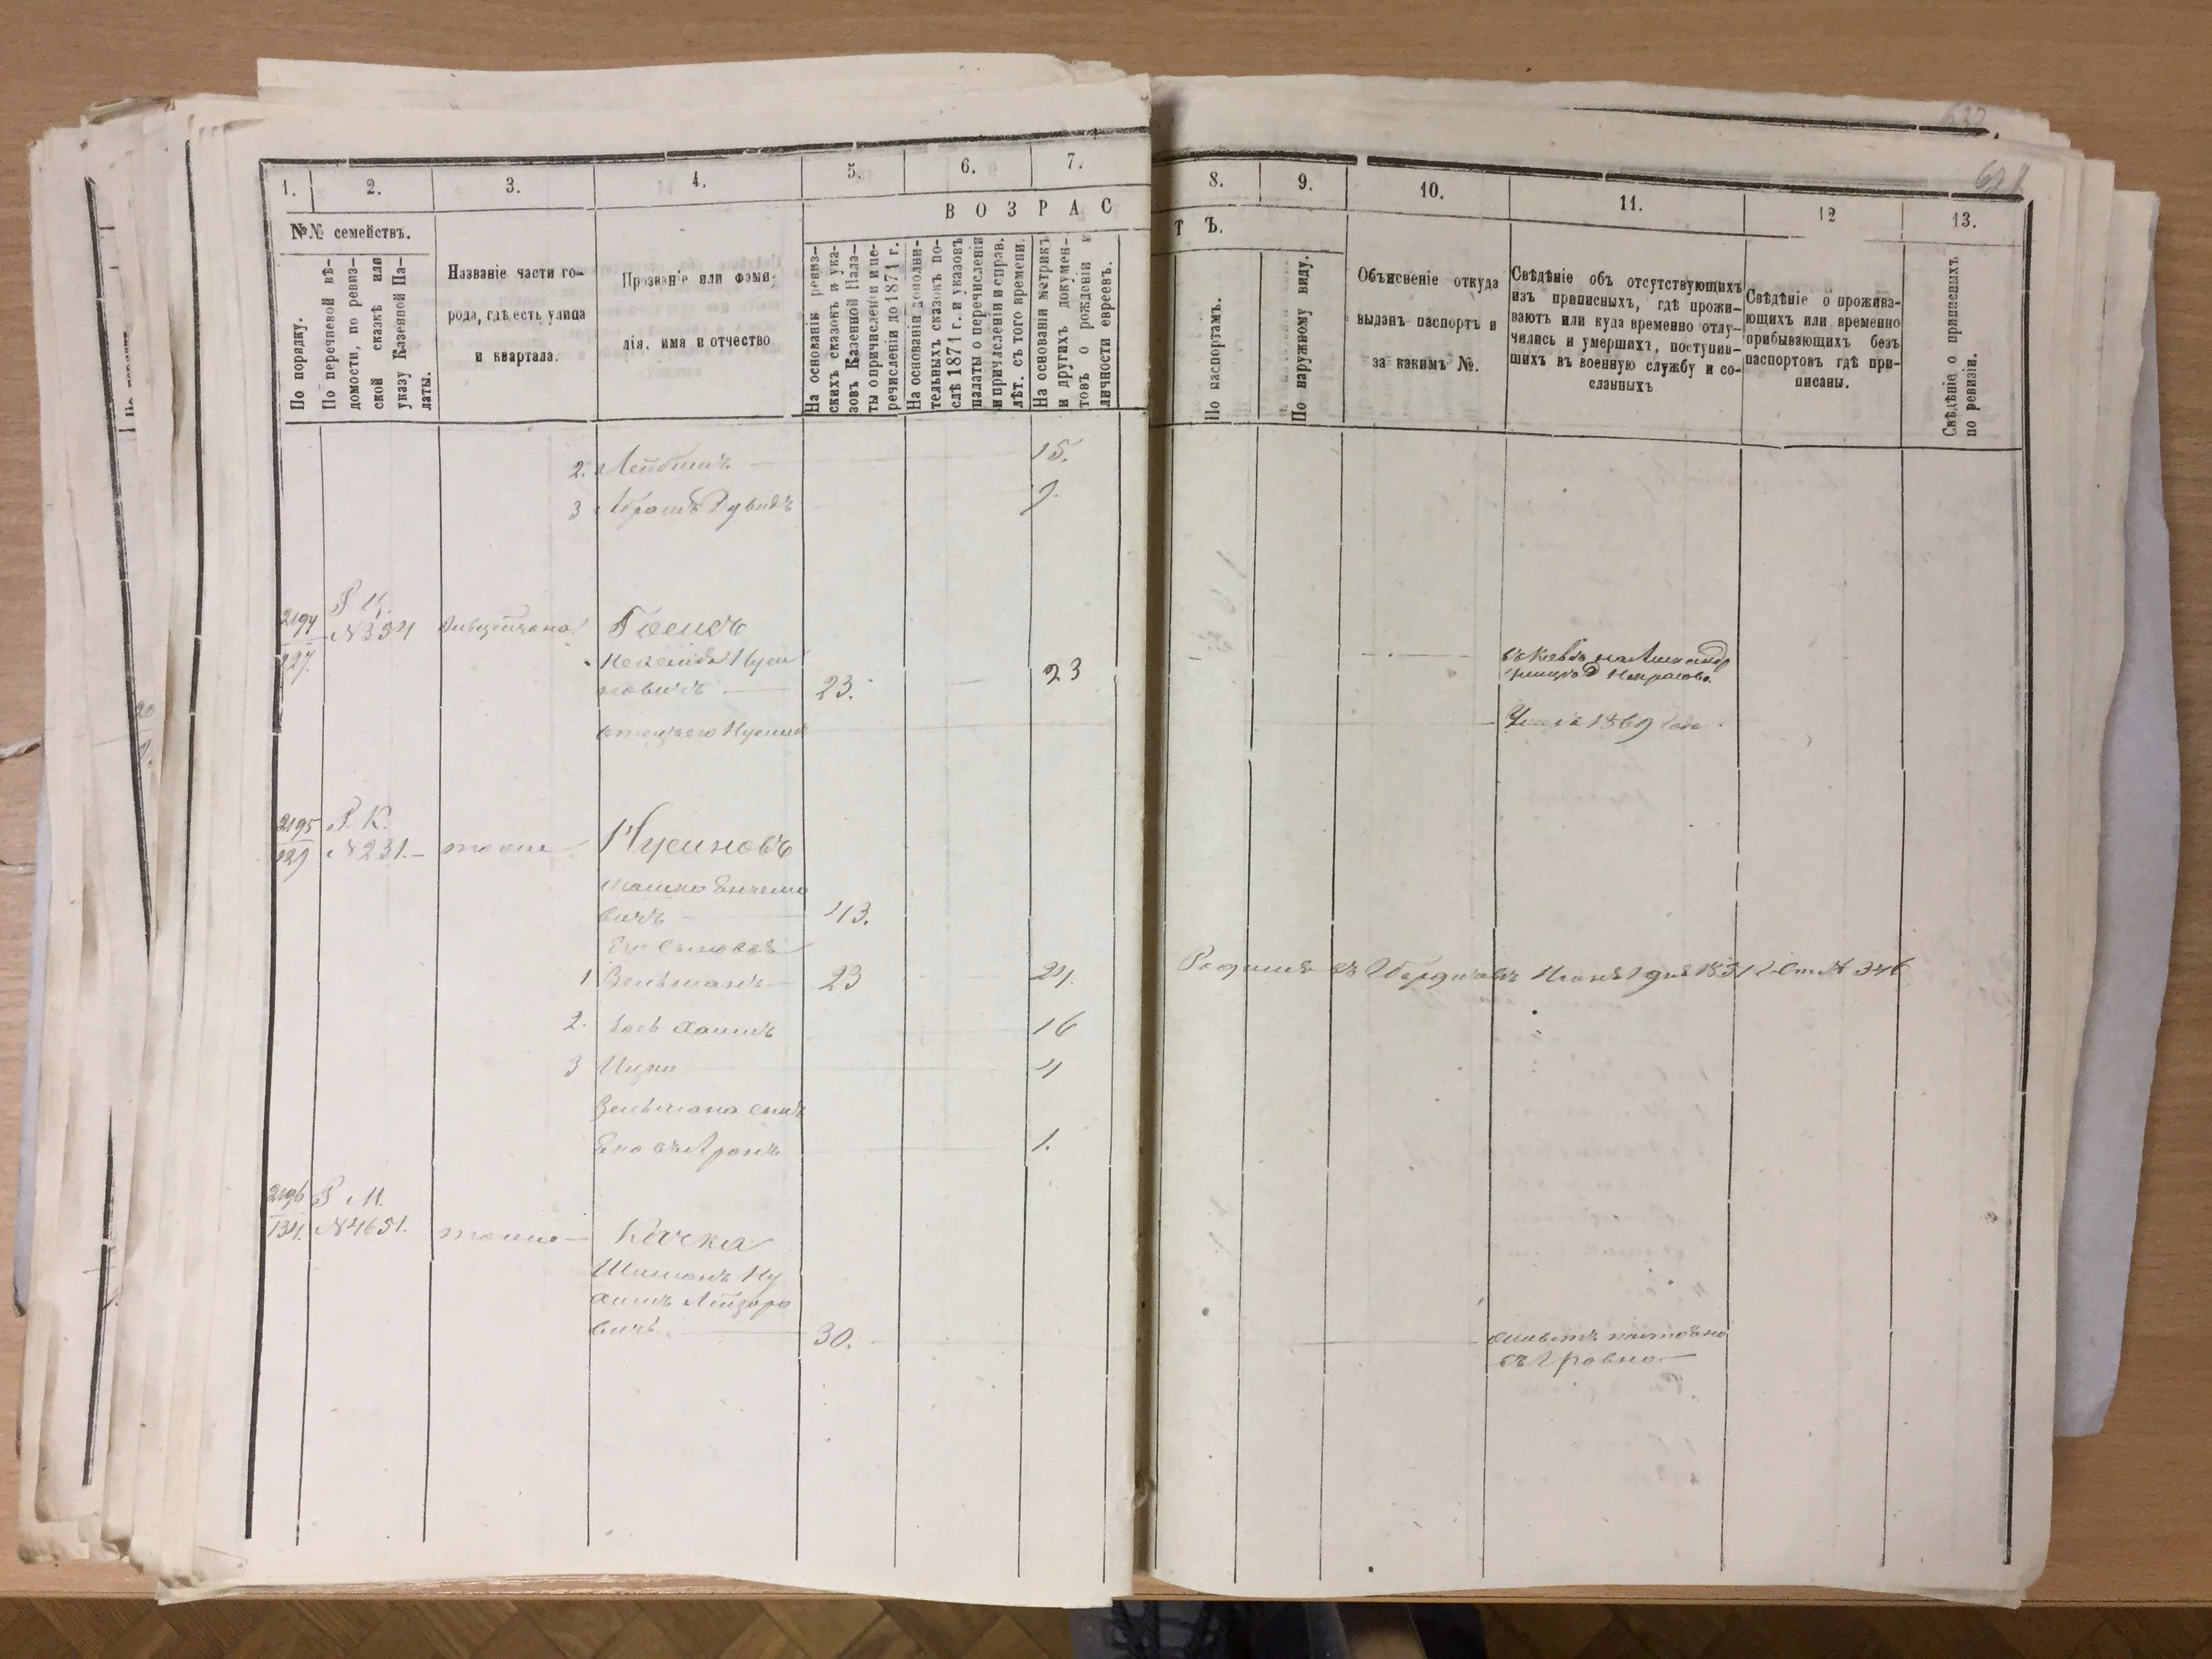 632.
1. 2. 3. 4. 5. 6. 7. 8. 9. 10. 11. 12 13.
№№ семействъ.
По порядку.
По перечневой вѣ-
домости, по ревиз-
ской сказкѣ или
указу Казенной Па-
латы.
Названіе части го-
рода, гдѣ есть улица
и квартала.
Прозваніе или фами-
лія, имя и отчество
ВОЗРАСТЪ.
На основаніи ревиз-
скихъ сказокъ и ука-
зовъ Казенной Пала-
ты о причисленіи и пе-
речисленіи до 1871 г.
На основаніи дополни-
тельныхъ сказокъ по-
слѣ 1871 г. и указовъ
палаты о перечисленіи
и причисленіи и справ.
лѣт. съ того времени.
На основаніи метрикъ
и другихъ докумен-
товъ о рожденіи и
личности евреевъ.
По паспортамъ.
По наружному виду.
Объясненіе откуда
выданъ паспортъ и
за какимъ №.
Свѣдѣніе объ отсутствующихъ
изъ приписныхъ, гдѣ прожи-
ваютъ или куда временно отлу-
чились и умершихъ, поступив-
шихъ въ военную службу и со-
сланныхъ
Свѣдѣніе о прожива-
ющихъ или временно
прибывающихъ безъ
паспортовъ гдѣ при-
писаны.
Свѣдѣніе о приписныхъ
по ревизіи.
2. Лейбишъ 15.
3 Абрамъ Дувидъ 9.
2194 Р К.
127. №354 Гоенкъ
Нусы
новичъ 23. 23
въ Кіевѣ на Александр
отецъ его Нусинъ
Умеръ 1869 года
2195 Р. К.
129 №231. тоже Нусиновъ
вичъ 43.
Его сыновья
1 Зельманъ 23 24.
Родился въ Бердичевѣ
2. Іось Хаимъ 16
3 Ицко 11
Зельмана сынъ
Аронъ 1.
2196 Р М.
134. №4651. тоже Качка
Шимонъ Ну
химъ Лейзоро
вичъ. 30.
живетъ
въ г Ровно